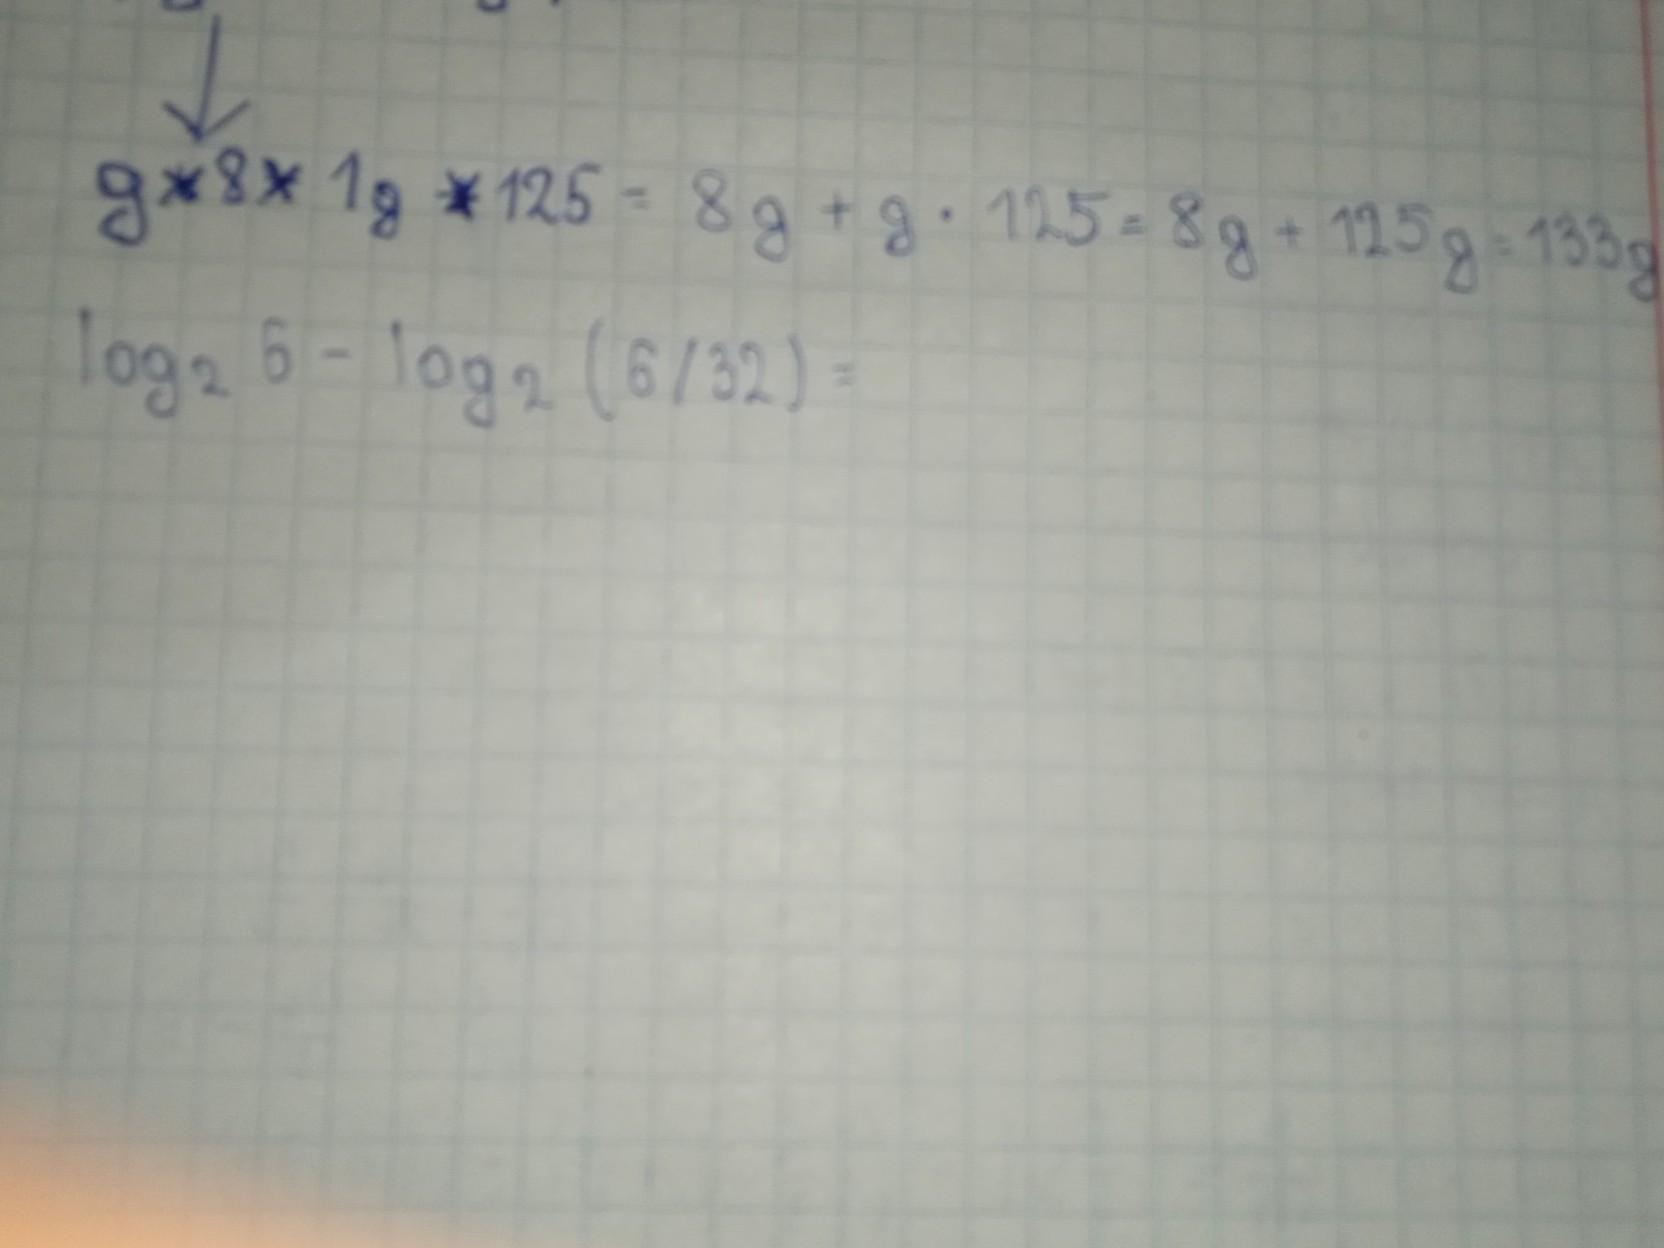 g*8* 1g *125 = 8g + g · 125 = 8g + 125g = 133g
log₂ 6 - log₂ (6/32) =